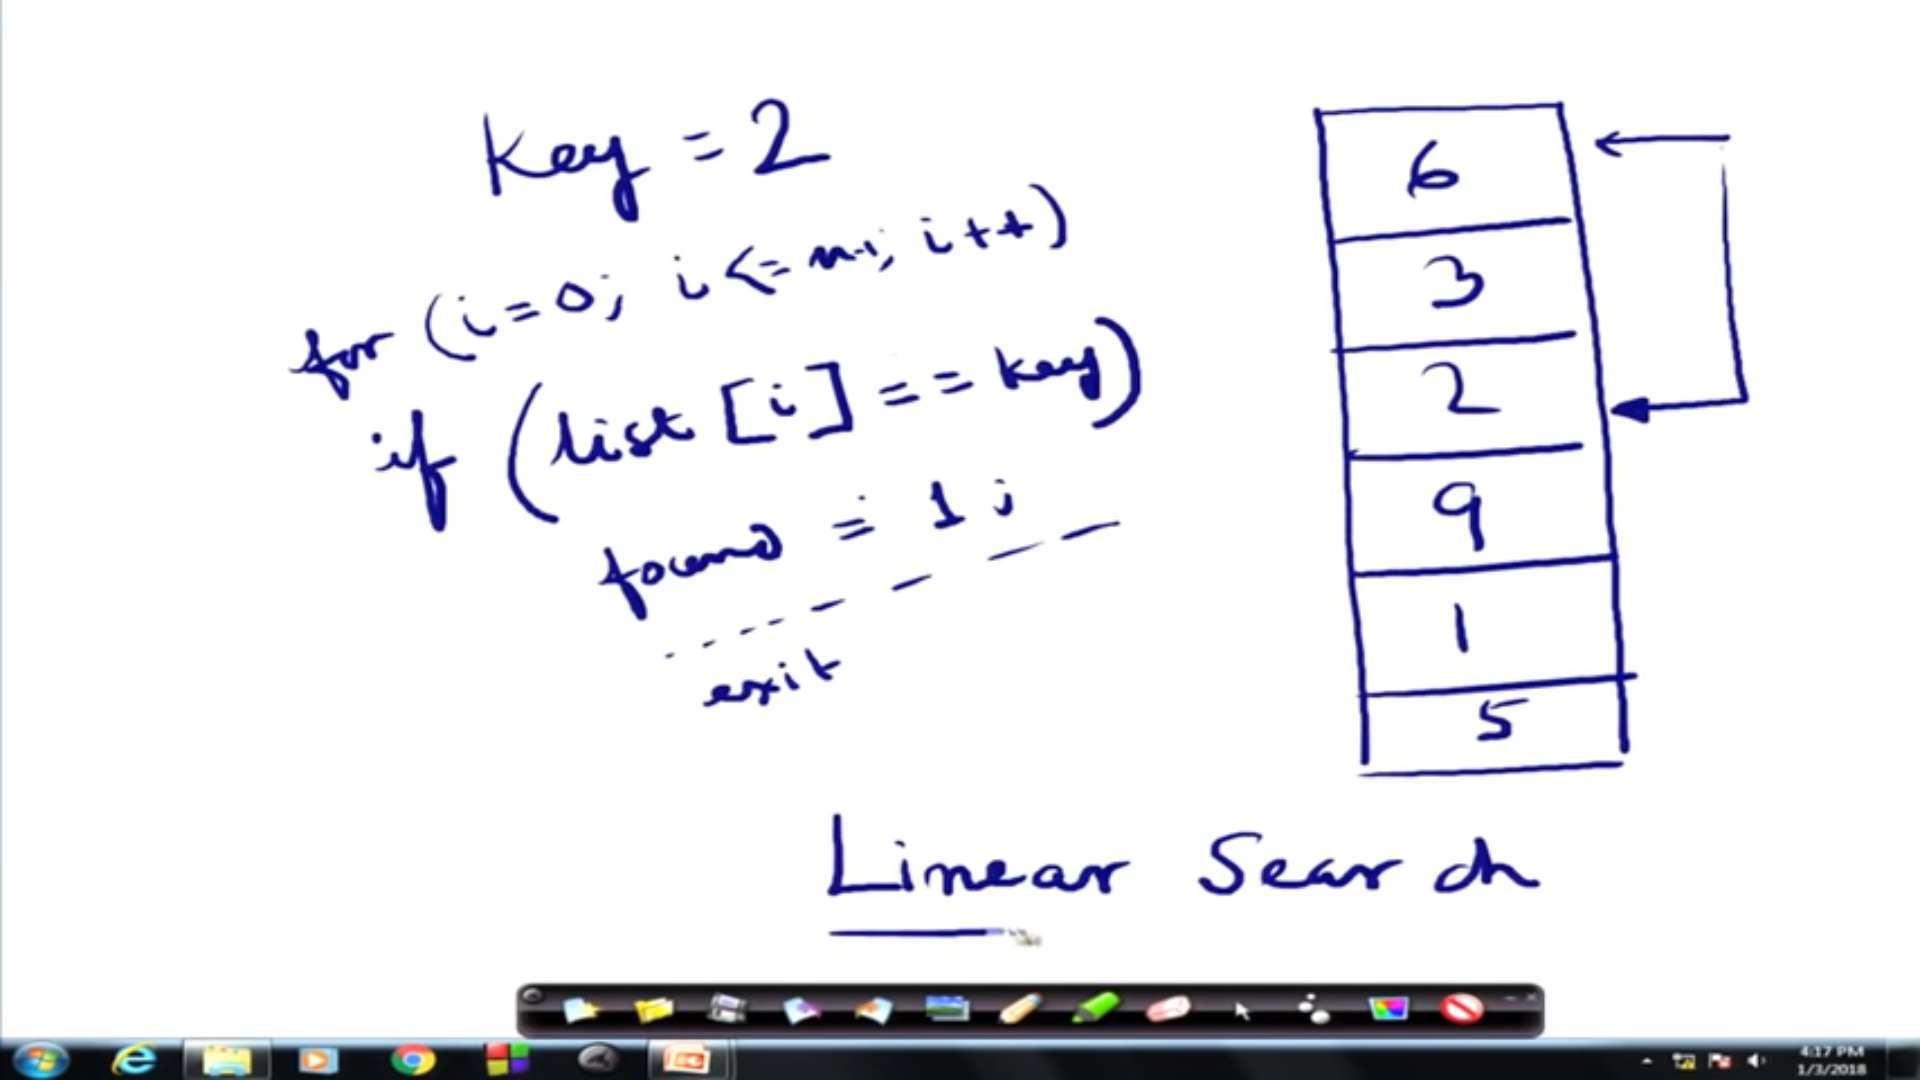 Key = 2
for (i=0; i<=n-1; i++)
if (list [i] == key)
found = 1;
exit
6
3
2
9
1
5
Linear Search
4:17 PM
1/3/2018